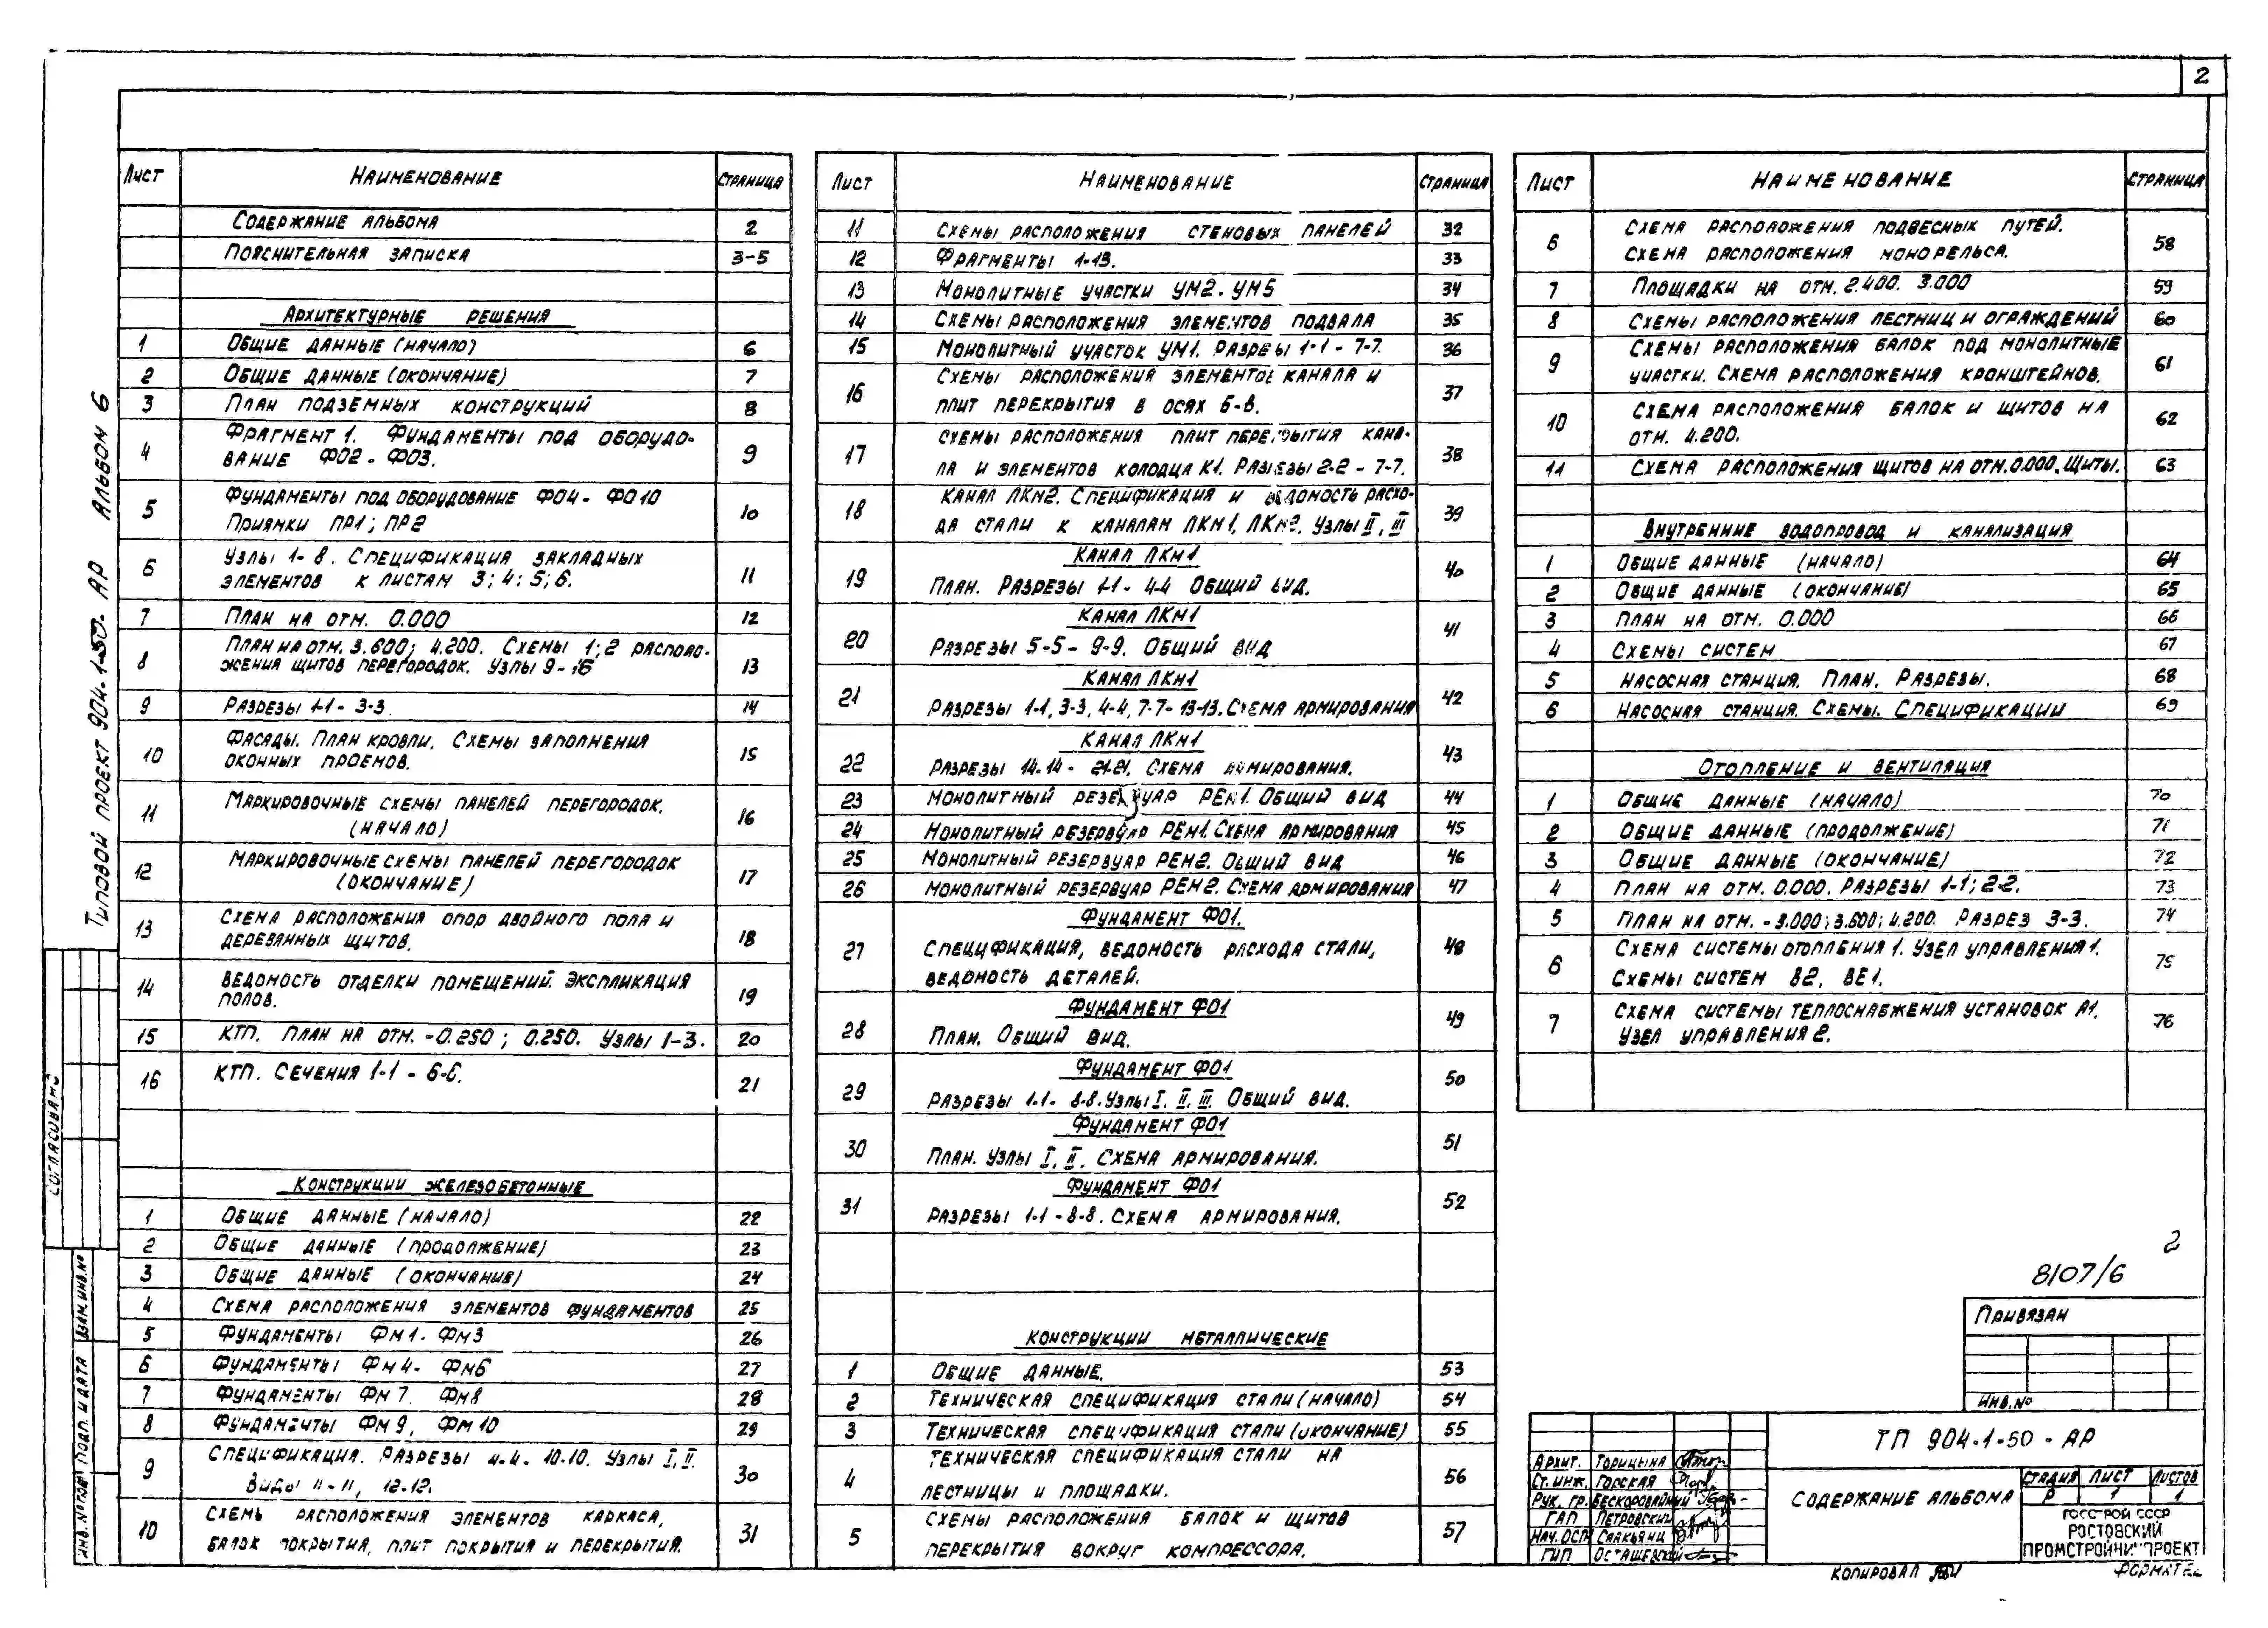 2
Типовой проект 904-1-50- АР Альбом 6
Лист Наименование Страница
Содержание альбома 2
Пояснительная записка 3-5
Архитектурные решения
1 Общие данные (начало) 6
2 Общие данные (окончание) 7
3 План подземных конструкций 8
4 Фрагмент 1. Фундаменты под оборудо- 9
вание ФО2 - ФО3.
5 Фундаменты под оборудование ФО4 - ФО10 10
Приямки ПР1; ПР2
6 Узлы 1-8. Спецификация закладных 11
элементов к листам 3; 4; 5; 6.
7 План на отм. 0.000 12
8 План на отм. 3.600; 4.200. Схемы 1; 2 располо- 13
жения щитов перегородок. Узлы 9-16
9 Разрезы 1-1 - 3-3. 14
10 Фасады. План кровли. Схемы заполнения 15
оконных проемов.
11 Маркировочные схемы панелей перегородок. 16
(начало)
12 Маркировочные схемы панелей перегородок 17
(окончание)
13 Схема расположения опор двойного пола и 18
деревянных щитов.
14 Ведомость отделки помещений. Экспликация 19
полов.
15 КТП. План на отм. -0.250; 0.250. Узлы 1-3. 20
16 КТП. Сечения 1-1 - 6-6. 21
Конструкции железобетонные
1 Общие данные (начало) 22
2 Общие данные (продолжение) 23
3 Общие данные (окончание) 24
4 Схема расположения элементов фундаментов 25
5 Фундаменты Фм1 - Фм3 26
6 Фундаменты Фм4 - Фм6 27
7 Фундаменты Фм7. Фм8 28
8 Фундаменты Фм9, Фм10 29
9 Спецификация. Разрезы 4-4 - 10-10. Узлы I, II. 30
Виды 11-11, 12-12.
10 Схемы расположения элементов каркаса, 31
балок покрытия, плит покрытия и перекрытия.
Лист Наименование Страница
11 Схемы расположения стеновых панелей 32
12 Фрагменты 1-13. 33
13 Монолитные участки УМ2 - УМ5 34
14 Схемы расположения элементов подвала 35
15 Монолитный участок УМ1. Разрезы 1-1 - 7-7. 36
16 Схемы расположения элементов канала и 37
плит перекрытия в осях Б-В.
17 Схемы расположения плит перекрытия кана- 38
ла и элементов колодца К1. Разрезы 2-2 - 7-7.
18 Канал ЛКм2. Спецификация и ведомость расхо- 39
да стали к каналам ЛКм1, ЛКм2. Узлы II, III
Канал ЛКм1
19 План. Разрезы 1-1 - 4-4 Общий вид. 40
Канал ЛКм1
20 Разрезы 5-5 - 9-9. Общий вид 41
Канал ЛКм1
21 Разрезы 1-1, 3-3, 4-4, 7-7 - 13-13. Схема армирования 42
Канал ЛКм1
22 Разрезы 14-14 - 21-21. Схема армирования. 43
23 Монолитный резервуар РЕм1. Общий вид 44
24 Монолитный резервуар РЕм1. Схема армирования 45
25 Монолитный резервуар РЕм2. Общий вид 46
26 Монолитный резервуар РЕм2. Схема армирования 47
Фундамент ФО1.
27 Спецификация, ведомость расхода стали, 48
ведомость деталей.
Фундамент ФО1
28 План. Общий вид. 49
Фундамент ФО1
29 Разрезы 1-1 - 8-8. Узлы I, II, III. Общий вид. 50
Фундамент ФО1
30 План. Узлы I, II. Схема армирования. 51
Фундамент ФО1
31 Разрезы 1-1 - 8-8. Схема армирования. 52
Конструкции металлические
1 Общие данные. 53
2 Техническая спецификация стали (начало) 54
3 Техническая спецификация стали (окончание) 55
4 Техническая спецификация стали на 56
лестницы и площадки.
5 Схемы расположения балок и щитов 57
перекрытия вокруг компрессора.
Лист Наименование Страница
6 Схема расположения подвесных путей. 58
Схема расположения монорельса.
7 Площадки на отм. 2.400. 3.000 59
8 Схемы расположения лестниц и ограждений 60
9 Схемы расположения балок под монолитные 61
участки. Схема расположения кронштейнов.
10 Схема расположения балок и щитов на 62
отм. 4.200.
11 Схема расположения щитов на отм. 0.000. Щиты. 63
Внутренние водопровод и канализация
1 Общие данные (начало) 64
2 Общие данные (окончание) 65
3 План на отм. 0.000 66
4 Схемы систем 67
5 Насосная станция. План. Разрезы. 68
6 Насосная станция. Схемы. Спецификации 69
Отопление и вентиляция
1 Общие данные (начало) 70
2 Общие данные (продолжение) 71
3 Общие данные (окончание) 72
4 План на отм. 0.000. Разрезы 1-1; 2-2. 73
5 План на отм. -3.000; 3.600; 4.200. Разрез 3-3. 74
6 Схема системы отопления 1. Узел управления 1. 75
Схемы систем В2, ВЕ1.
7 Схема системы теплоснабжения установок А1. 76
Узел управления 2.
2
8107/6
Привязан
Инв.№
ТП 904-1-50 - АР
Архит. Торицына
Ст. инж. Горская
Рук. гр. Бескоровайный
ГАП Петровский
Нач. ОСП Саакьянц
ГИП Осташевский
Содержание альбома
Стадия Лист Листов
Р 1 1
Госстрой СССР
Ростовский
Промстройниипроект
Копировал
Формат
Согласовано
Взам. инв.№
Подп. и дата
Инв. № подл